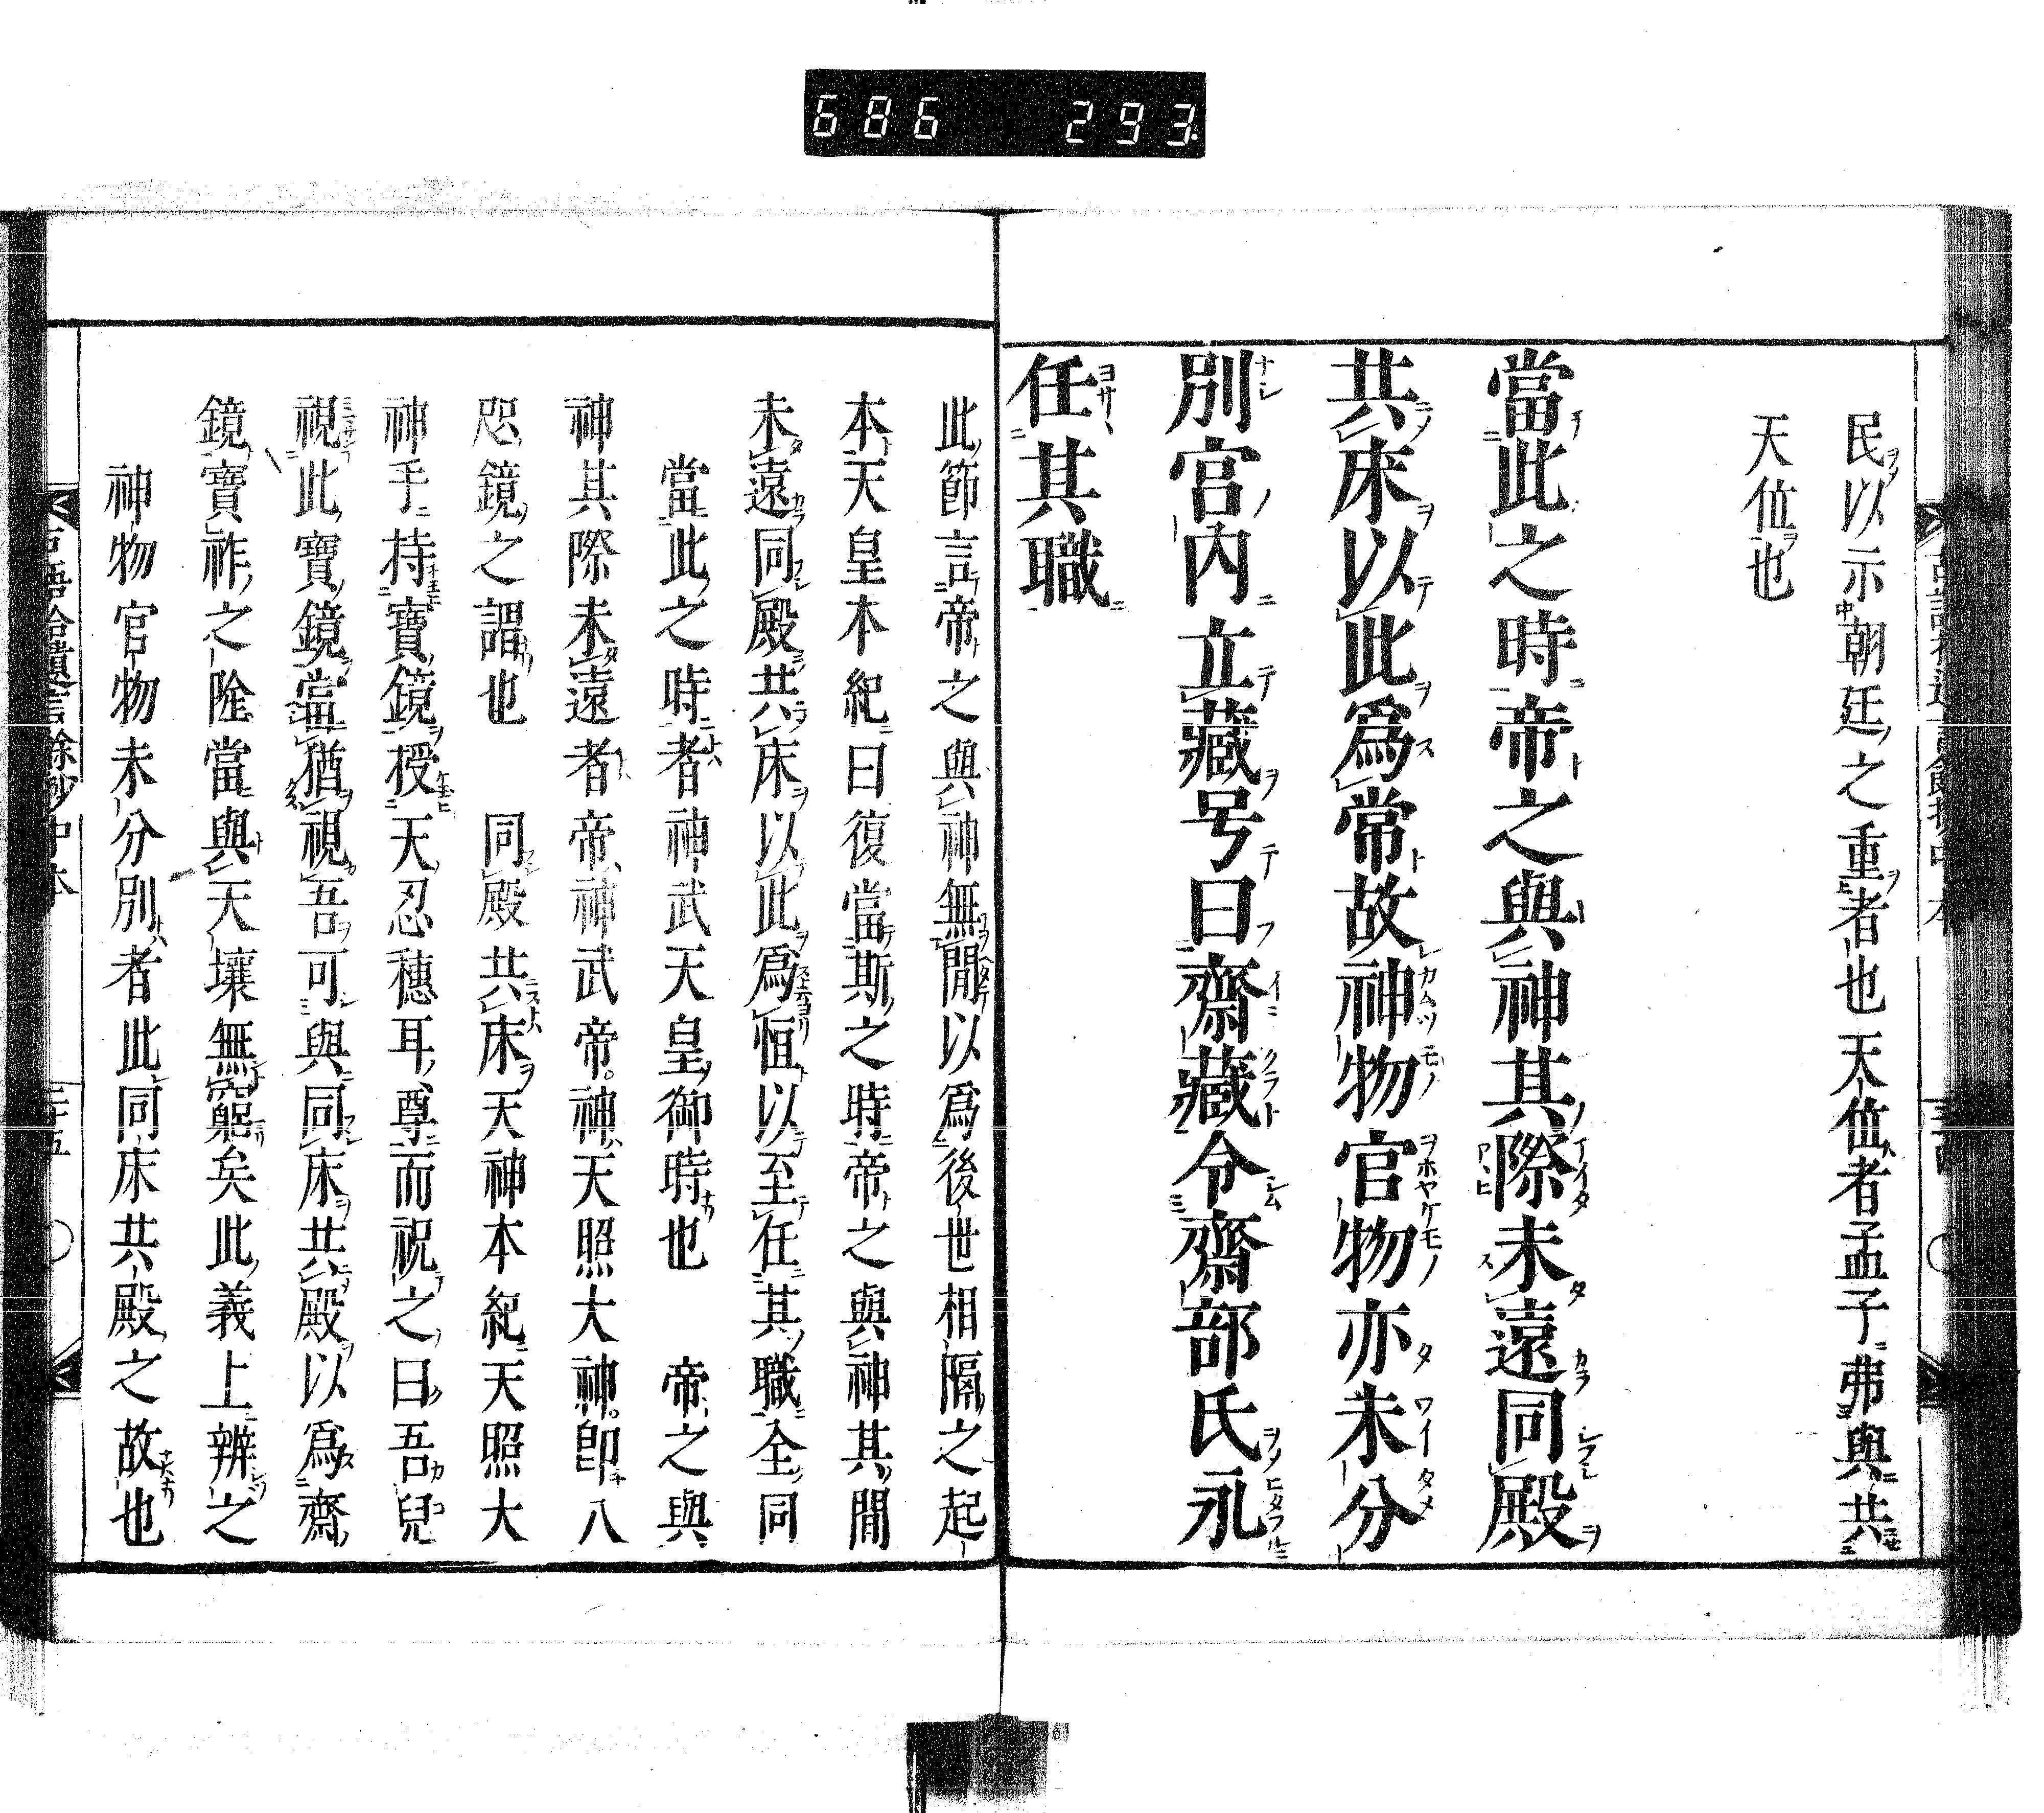 686 293
民以示中朝廷之重者也天位者孟子弗與共
天位也
當此之時帝之與神其際未遠同殿
共床以此爲常故神物官物亦未分
別宮內立藏号曰齋藏令齋部氏永
任其職
此節言帝之與神無間以爲後世相隔之起
本天皇本紀曰復當斯之時帝之與神其間
未遠同殿共床以此爲恒以至任其職全同
當此之時者神武天皇御時也 帝之與
神其際未遠者帝神武帝神天照大神卽八
咫鏡之謂也 同殿共床天神本紀天照大
神手持寶鏡授天忍穗耳尊而祝之曰吾兒
視此寶鏡當猶視吾可與同床共殿以爲齋
鏡寶祚之隆當與天壤無窮矣此義上辨之
神物官物未分別者此同床共殿之故也
古語拾遺言餘抄中本 三十五